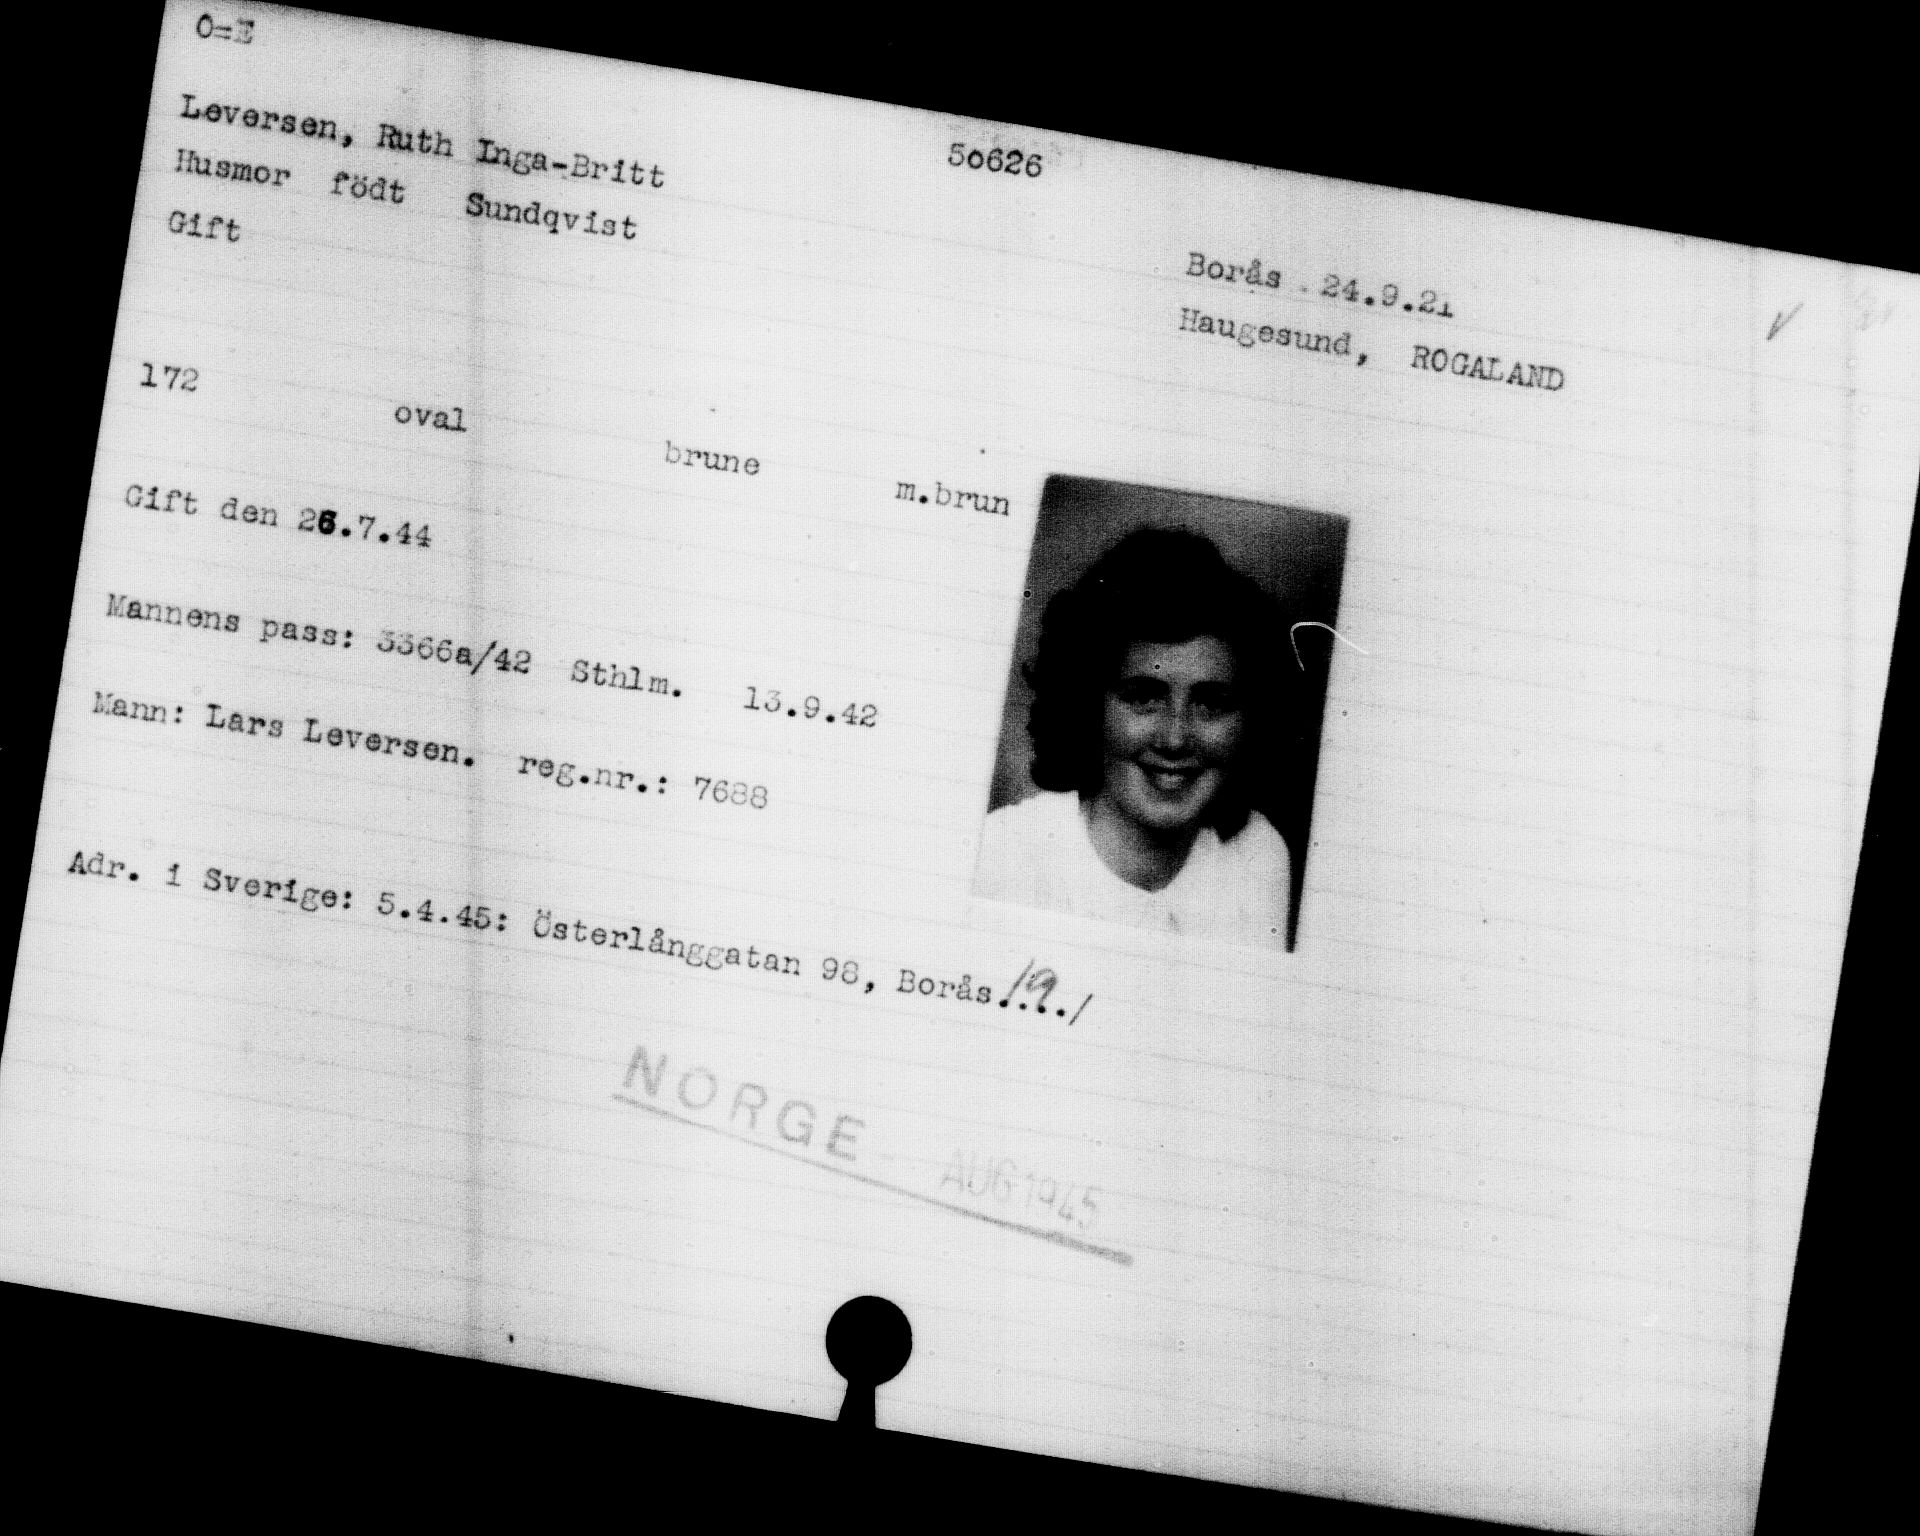 O=E
Leversen, Ruth Inga-Britt 50626
Husmor födt Sundqvist Borås . 24.9.21
Gift Haugesund, ROGALAND
172 oval brune m.brun
Gift den 26.7.44
Mannens pass: 3366a/42 Sthlm. 13.9.42
Mann: Lars Leversen. reg.nr.: 7688
Adr. i Sverige: 5.4.45: Österlånggatan 98, Borås./9../
NORGE AUG 1945